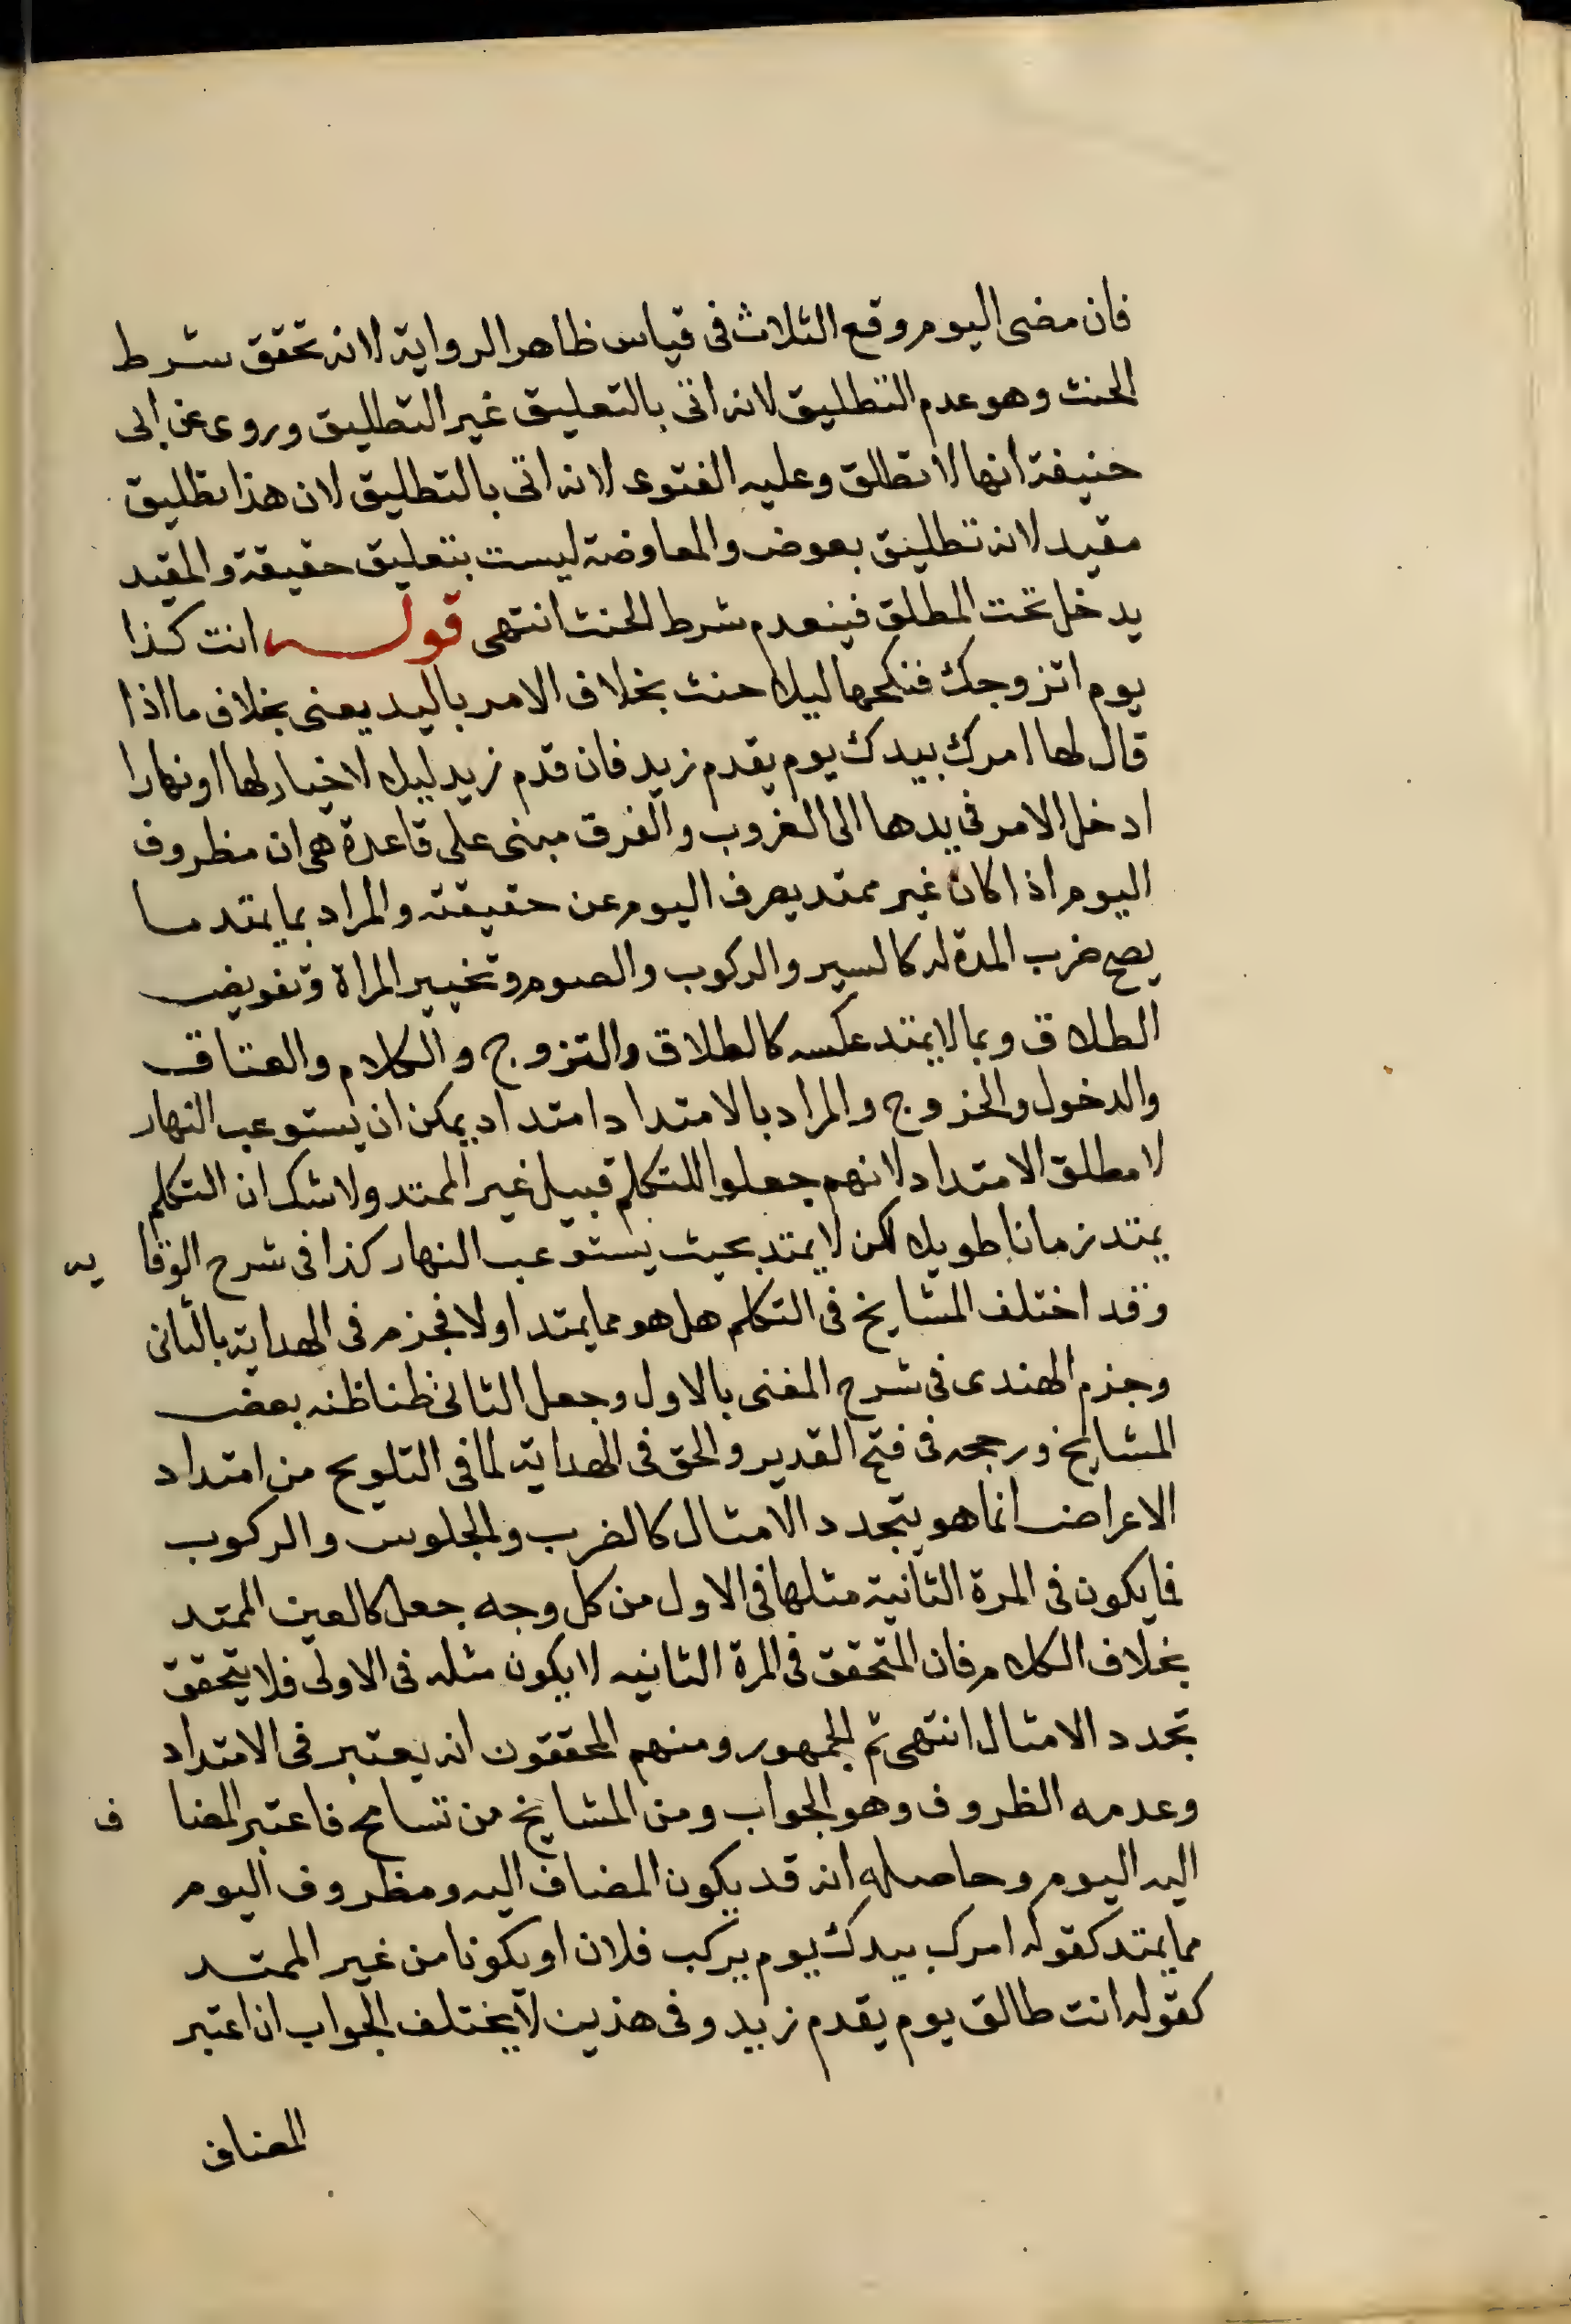 فان مضى اليوم وقع الثلاث فى قياس ظاهر الرواية لانه تحقق شرط
الحنث وهو عدم التطليق لانه اتى بالتعليق غير التطليق وروى عن ابى
حنيفة انها لا تطلق وعليه الفتوى لانه اتى بالتطليق لان هذا تطليق
مقيد لانه تطليق بعوض والمعاوضة ليست بتعليق حقيقة والمقيد
يدخل تحت المطلق فينعدم شرط الحنث انتهى قوله انت كذا
يوم اتزوجك فنكحها ليلا حنث بخلاف الامر باليد يعنى بخلاف ما اذا
قال لها امرك بيدك يوم يقدم زيد فان قدم زيد ليلا لا خيار لها او نهارا
ادخل الامر فى يدها الى الغروب والفرق مبنى على قاعدة هى ان مظروف
اليوم اذا كان غير ممتد يصرف اليوم عن حقيقته والمراد بما يمتد ما
يصح ضرب المدة له كالسير والركوب والصوم وتخيير المراة وتفويض
الطلاق وبما لا يمتد عكسه كالطلاق والتزوج والكلام والعتاق
والدخول والخروج والمراد بالامتداد امتداد يمكن ان يستوعب النهار
لا مطلق الامتداد لانهم جعلوا للتكلم قبيل غير الممتد ولا شك ان التكلم
يمتد زمانا طويلا لكن لا يمتد بحيث يستوعب النهار كذا فى شرح الوقا يه
وقد اختلف المشايخ فى التكلم هل هو مما يمتد اولا فجزم فى الهداية بالثانى
وجزم الهندى فى شرح المغنى بالاول وجعل الثانى ظنا ظنه بعض
المشايخ ورجحه فى فتح القدير والحق فى الهداية لما فى التلويح من امتداد
الاعراض انما هو بتجدد الامثال كالضرب والجلوس والركوب
فما يكون فى المرة الثانية مثلها فى الاول من كل وجه جعل كالعين الممتد
بخلاف الكلام فان المتحقق فى المرة الثانيه لا يكون مثله فى الاولى فلا يتحقق
تجدد الامثال انتهى ثم الجمهور ومنهم المحققون انه يعتبر فى الامتداد
وعدمه الظروف وهو الجواب ومن المشايخ من تسامح فاعتبر المضا ف
اليه اليوم وحاصله انه قد يكون المضاف اليه ومظروف اليوم
مما يمتد كقوله امرك بيدك يوم يركب فلان او يكونا من غير الممتد
كقوله انت طالق يوم يقدم زيد وفى هذين لا يختلف الجواب ان اعتبر
المضاف